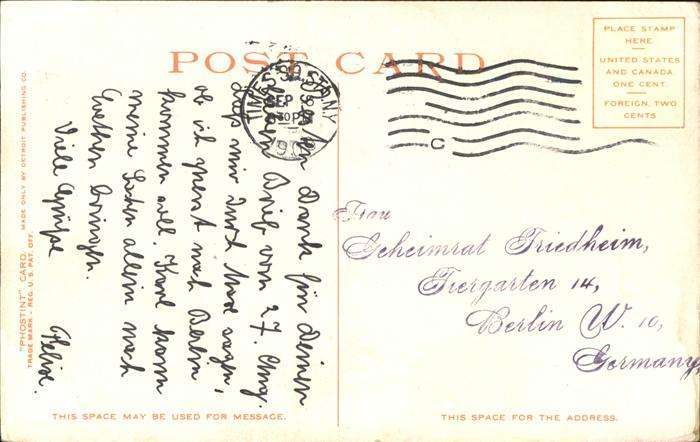 POST CARD
PLACE STAMP
HERE
UNITED STATES
AND CANADA
ONE CENT
FOREIGN, TWO
CENTS
TIMES SQ. STA. N.Y.
SEP
C
Dank für Deinen
lieben Brief von 27. Aug.
daß mir durch sagen,
ob ich zuerst nach Berlin
kommen soll. Karl kann
meine allein nach
bringen.
Viele Grüße
Felix.
Frau
Geheimrat Friedheim,
Tiergarten 14,
Berlin W. 10,
Germany,
"PHOSTINT" CARD.
TRADE MARK - REG. U. S. PAT. OFF.
MADE ONLY BY DETROIT PUBLISHING CO.
THIS SPACE MAY BE USED FOR MESSAGE.
THIS SPACE IS FOR THE ADDRESS.